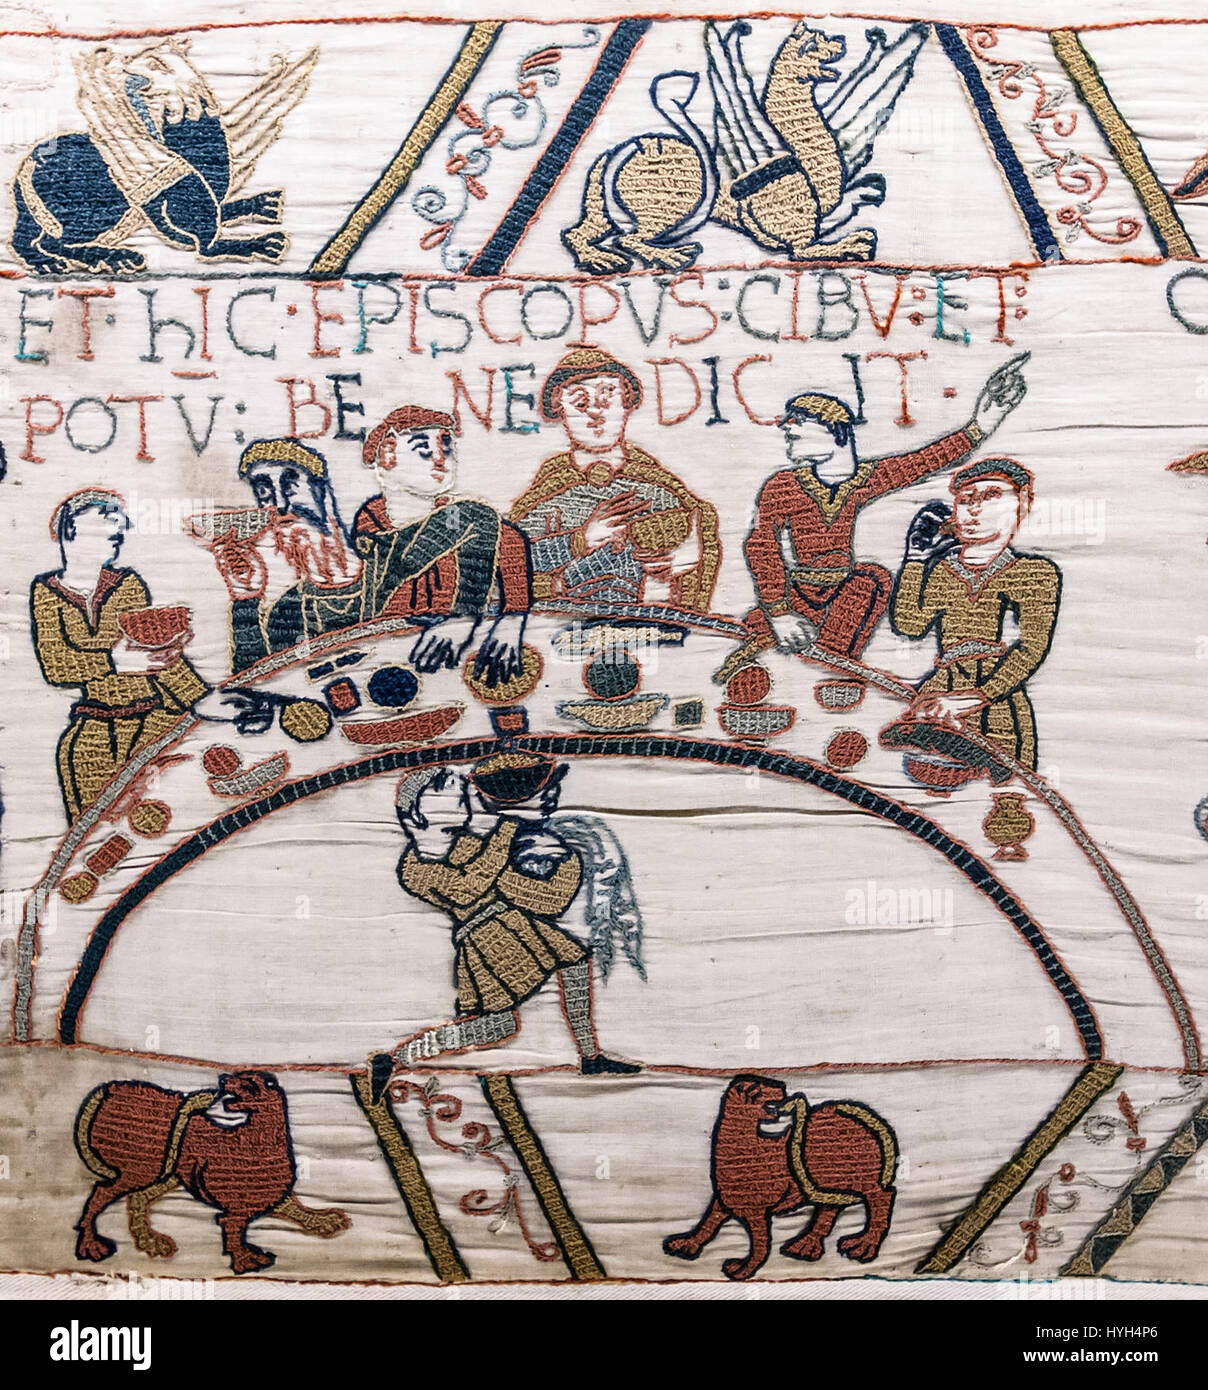 ET: hIC: EPISCOPVS: CIBV: ET:
POTV: BENEDICIT.
C
alamy
alamy
Image ID: HYH4P6
www.alamy.com